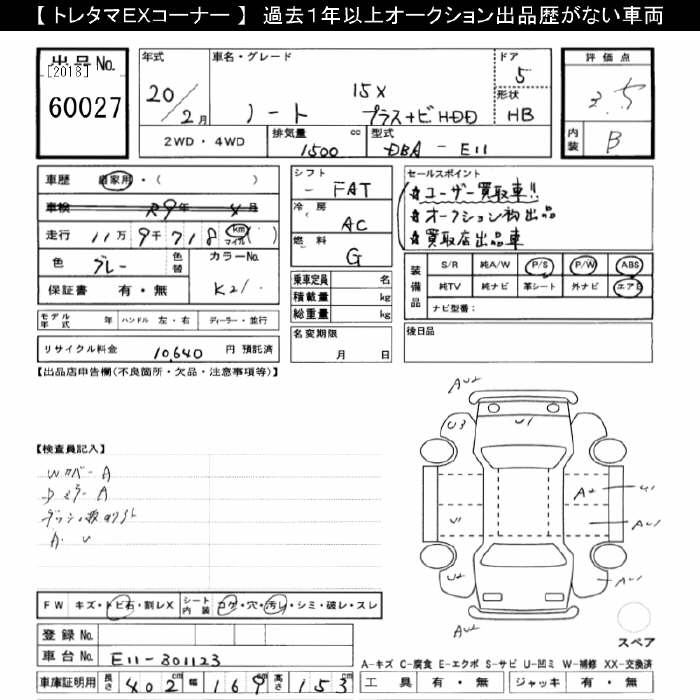 【 トレタマEXコーナー 】 過去１年以上オークション出品歴がない車両
出品No.
[2018]
60027
年式
20/2月
車名・グレード
ノート 15X
プラス+ビHDD
ドア
5
形状
HB
評価点
3.5
内装
B
2WD・4WD
排気量
1500 cc
型式
DBA - E11
車歴 自家用・( )
車検 R9年 4月
走行 11万9千718 km マイル ( )
色 グレー 色替
カラーNo.
K21
保証書 有・無
モデル年式 年 ハンドル 左・右 ディーラー・並行
リサイクル料金 10,640 円 預託済
シフト
- FAT
冷房
AC
燃料
G
乗車定員 名
積載量 kg
総重量 kg
名変期限
月 日
セールスポイント
☆ユーザー買取車!!
☆オークション初出品
☆買取店出品車
装備品
S/R 純A/W P/S P/W ABS
純TV 純ナビ 革シート 外ナビ エアB
ナビ型番：
後日品
【出品店申告欄(不良箇所・欠品・注意事項等)】
【検査員記入】
Wカバー A
ドミラー A
A. U
FW キズ・トビ石・割レX
シート内装 コゲ・穴・汚レ・シミ・破レ・スレ
登録 No.
車台 No. E11-301123
車庫証明用 長さ 402 cm 幅 169 cm 高さ 153 cm
AU2
U3
U1
A2
U1
U1
AU1
U2
AU1
AU2
スペア
A-キズ C-腐食 E-エクボ S-サビ U-凹ミ W-補修 XX-交換済
工具 有・無 ジャッキ 有・無